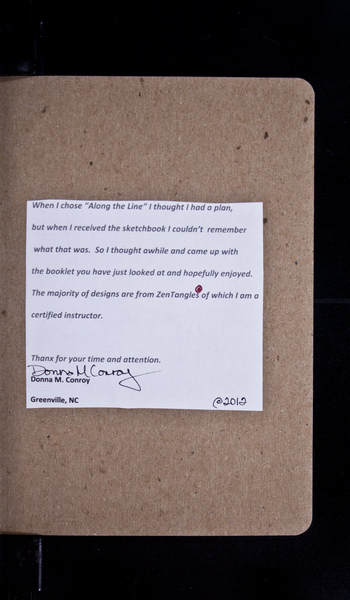 When I chose "Along the Line" I thought I had a plan,
but when I received the sketchbook I couldn't remember
what that was. So I thought awhile and came up with
the booklet you have just looked at and hopefully enjoyed.
The majority of designs are from ZenTangles ® of which I am a
certified instructor.
Thanx for your time and attention.
Donna M Conroy
Donna M. Conroy
Greenville, NC
@2012